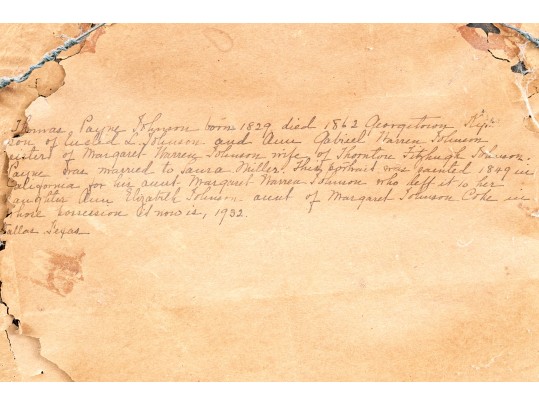 Thomas Payne Johnson born 1829 died 1862 Georgetown Ky.
son of L. Johnson and Ann Gabriel Warren Johnson
sister of Margaret Warren Johnson wife of Thornton Fitzhugh Johnson.
Payne was married to Laura Miller. This portrait was painted 1849 in
California for his aunt, Margaret Warren Johnson who left it to her
daughter Ann Elizabeth Johnson - aunt of Margaret Johnson Coke in
whose possession it now is, 1932.
Dallas Texas